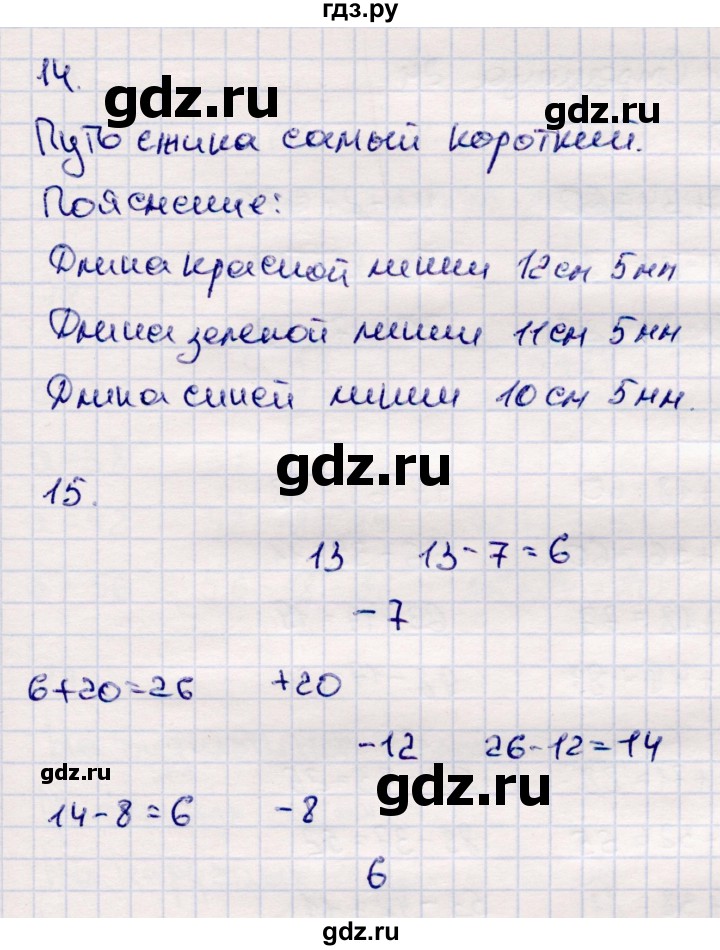 гдз.ру
14.
gdz.ru
gdz.ru
Путь ежика самый короткий.
Пояснение:
Длина красной линии 12 см 5 мм
Длина зеленой линии 11 см 5 мм
Длина синей линии 10 см 5 мм.
gdz.ru
15.
13 13-7=6
-7
6+20=26 +20
-12 26-12=14
gdz.ru
gdz.ru
14-8=6 -8
6
gdz.ru